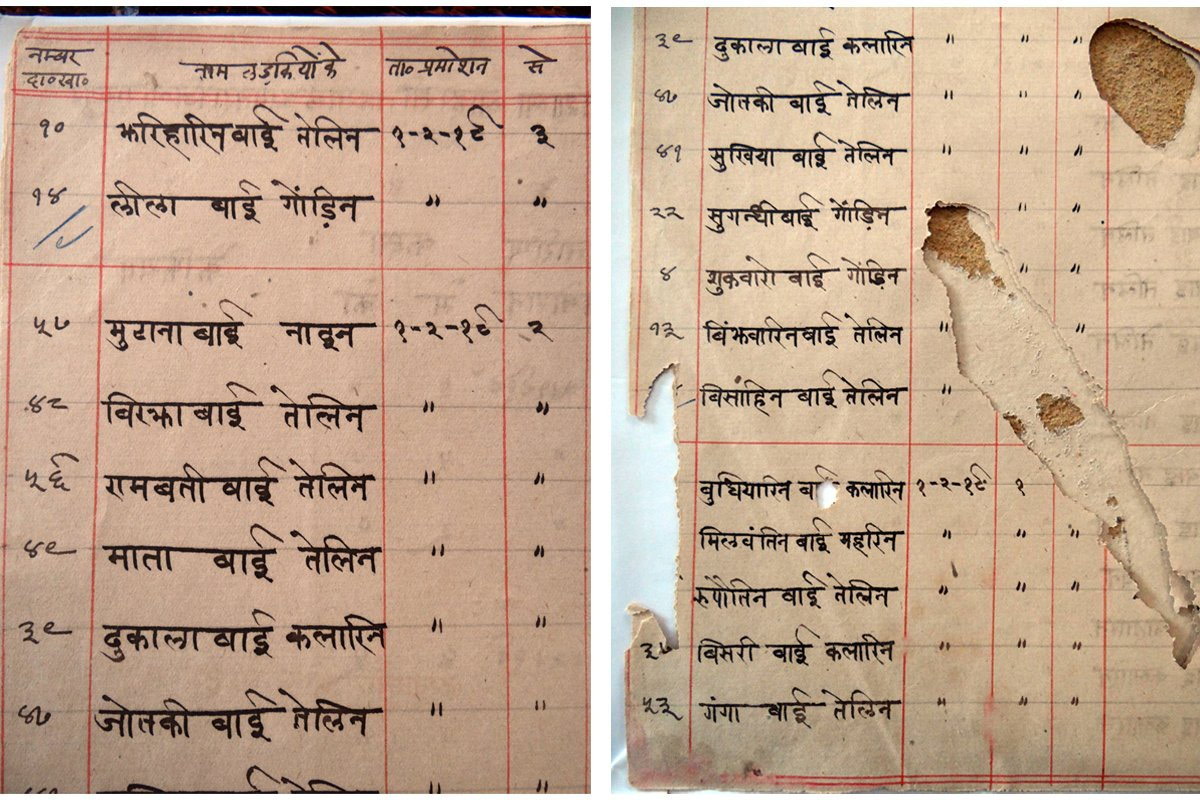 नम्बर दा०खा० नाम लड़कियों के ता० प्रमोशन से
१० झरिहारिन बाई तेलिन १-२-१८ ३
१४ लीला बाई गोंड़िन " "
मुटाना बाई नाइन १-२-१८ २
४८ बिरझा बाई तेलिन " "
५६ रामबती बाई तेलिन " "
४९ माता बाई तेलिन " "
३९ दुकाला बाई कलारिन " "
४७ जोतकी बाई तेलिन " "
३९ दुकाला बाई कलारिन " " "
४७ जोतकी बाई तेलिन " " "
४१ मुखिया बाई तेलिन " " "
२२ सुगन्धी बाई गोंड़िन " "
४ शुकवारो बाई गोंड़िन " "
१३ बिंझवारिन बाई तेलिन " "
बिसाहिन बाई तेलिन "
बुधियारिन बाई कलारिन १-२-१८ १
मिलवंतिन बाई महरिन " " "
रुपौतिन बाई तेलिन " " "
बिसरी बाई कलारिन " " "
५३ गंगा बाई तेलिन " " "